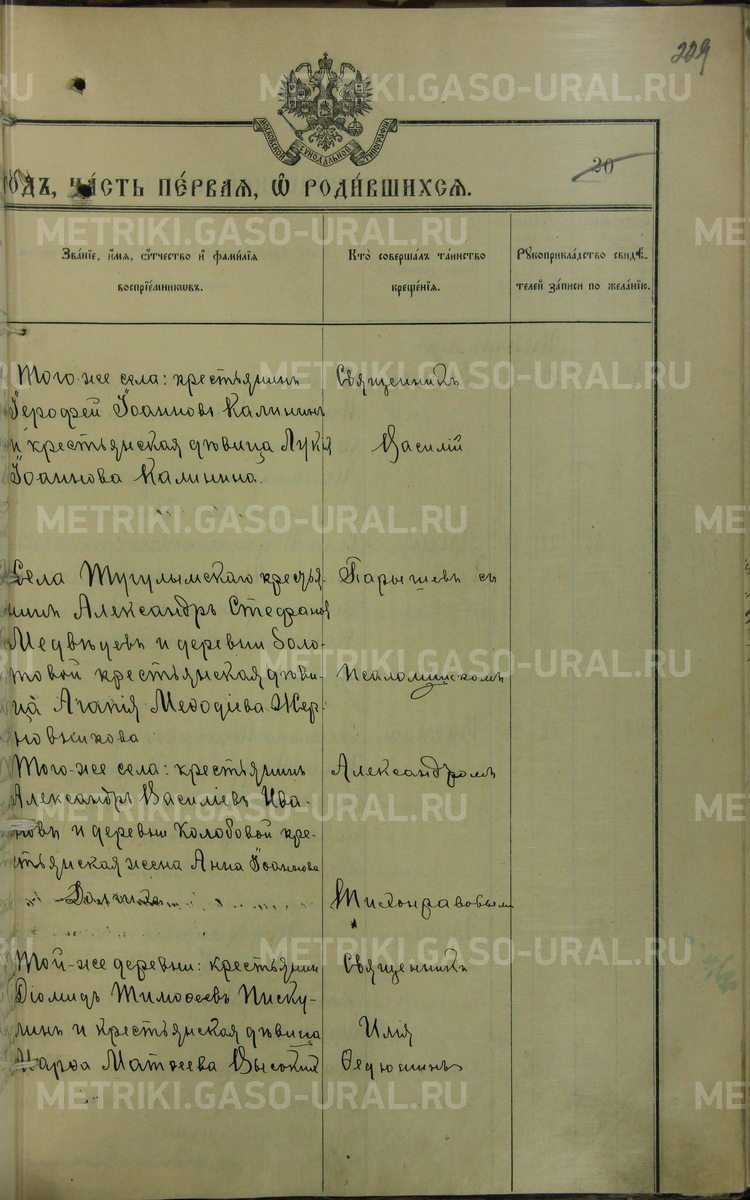 229
МОСКОВСКОЙ СѴНОДАЛЬНОЙ ТИПОГРАФІИ
20
ГОДЪ, ЧА́СТЬ ПЕ́РВАЯ, Ѡ҆ РОДИ́ВШИХСЯ.
Зва́нїе, и҆́мя, ѻ҆́тчество и҆ фами́лїя
воспрїе́мникѡвъ.
Кто̀ соверша́лъ та́инство
креще́нїя.
Рꙋкоприкла́дство свидѣ́-
телей за́писи по жела́нїю.
Того-же села: крестьянинъ
Іерофей Іоанновъ Калининъ
и крестьянская дѣвица Лукія
Іоаннова Калинина.
Священникъ
Василій
Села Тугулымскаго кресть-
нинъ Александръ Стефановъ
Медвѣдевъ и деревни Коло-
товой крестьянская дѣви-
ца Агапія Меѳодіева Жер-
новникова
Парышевъ съ
псаломщикомъ
Того-же села: крестьянинъ
Александръ Василіевъ Ива-
новъ и деревни Колобовой кре-
стьянская жена Анна Іоаннова
Александромъ
Тихонравовымъ
Той-же деревни: крестьянинъ
Діомидъ Тимоѳеевъ Писку-
линъ и крестьянская дѣвица
Марѳа Матѳеева Высокихъ
Священникъ
Илія
Ѳедюшинъ
METRIKI.GASO-URAL.RU